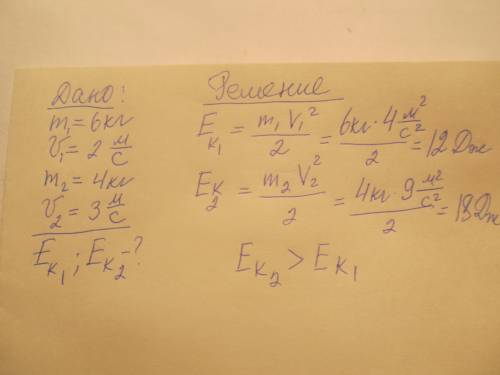 Дано:
m₁ = 6кг
V₁ = 2 м/с
m₂ = 4кг
V₂ = 3 м/с
Eₖ₁ ; Eₖ₂ - ?
Решение
Eₖ₁ = m₁V₁²/2 = 6кг · 4 м²/с² / 2 = 12 Дж
Eₖ₂ = m₂V₂²/2 = 4кг · 9 м²/с² / 2 = 18 Дж
Eₖ₂ > Eₖ₁